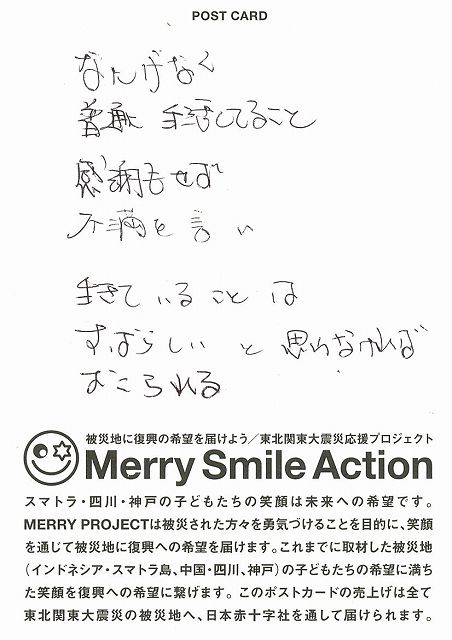 POST CARD
なにげなく
普通に 生活してること
感謝もせず
不満を言い
生きていることは
すばらしいと思わなければ
おこられる
被災地に復興の希望を届けよう／東北関東大震災応援プロジェクト
Merry Smile Action
スマトラ・四川・神戸の子どもたちの笑顔は未来への希望です。
MERRY PROJECTは被災された方々を勇気づけることを目的に、笑顔
を通じて被災地に復興への希望を届けます。これまでに取材した被災地
（インドネシア・スマトラ島、中国・四川、神戸）の子どもたちの希望に満ち
た笑顔を復興への希望に繋げます。このポストカードの売上げは全て
東北関東大震災の被災地へ、日本赤十字社を通して届けられます。